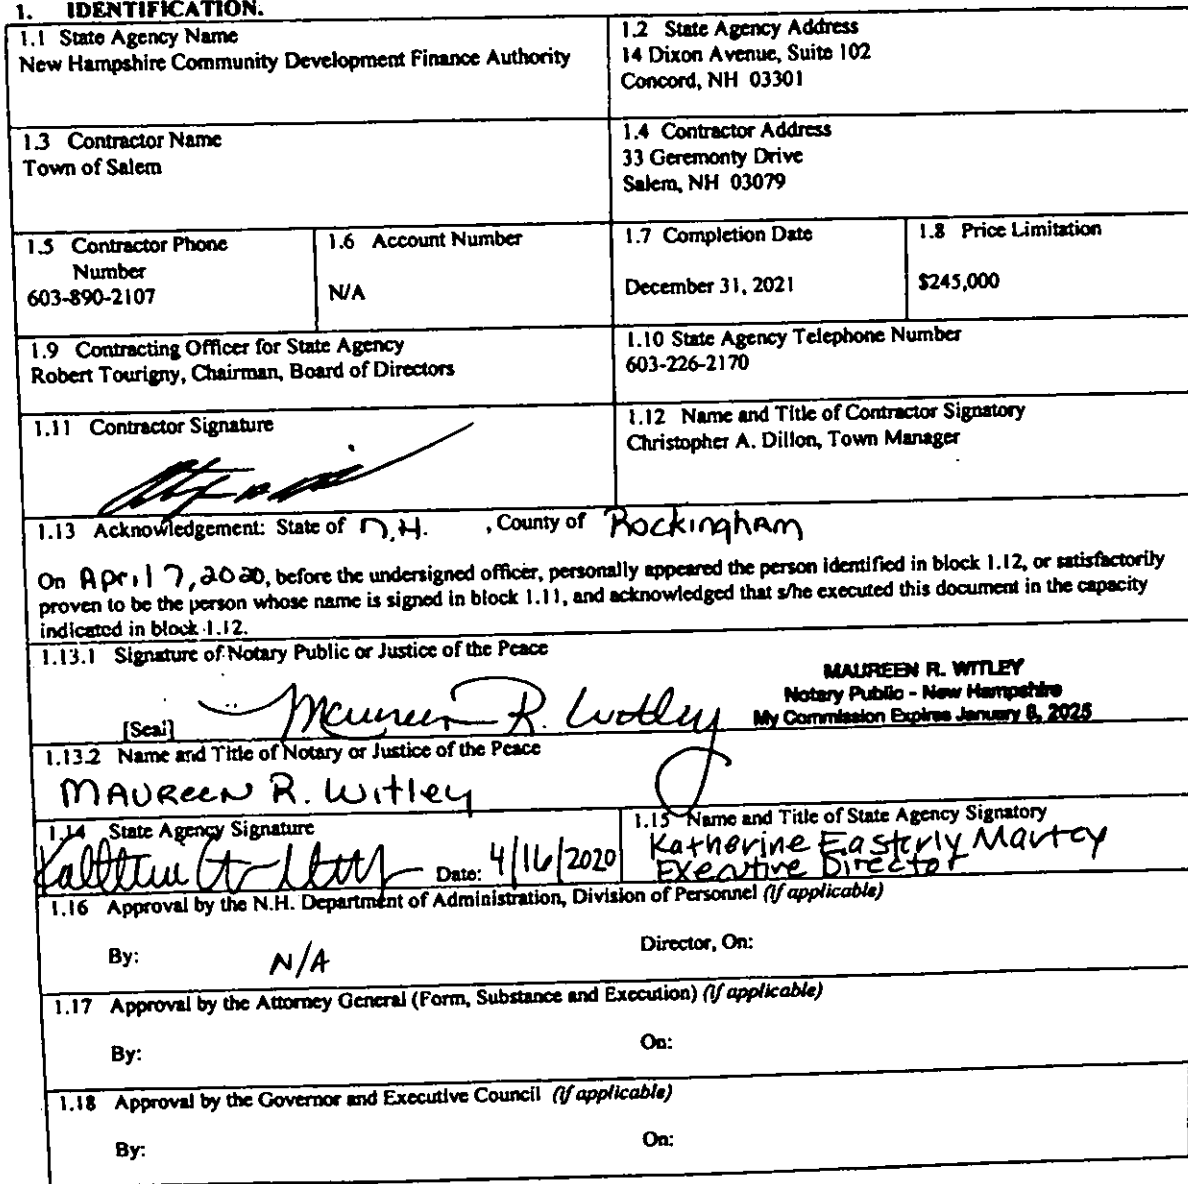 1. IDENTIFICATION.
1.1 State Agency Name
New Hampshire Community Development Finance Authority
1.2 State Agency Address
14 Dixon Avenue, Suite 102
Concord, NH 03301
1.3 Contractor Name
Town of Salem
1.4 Contractor Address
33 Geremonty Drive
Salem, NH 03079
1.5 Contractor Phone
Number
603-890-2107
1.6 Account Number
N/A
1.7 Completion Date
December 31, 2021
1.8 Price Limitation
$245,000
1.9 Contracting Officer for State Agency
Robert Tourigny, Chairman, Board of Directors
1.10 State Agency Telephone Number
603-226-2170
1.11 Contractor Signature
1.12 Name and Title of Contractor Signatory
Christopher A. Dillon, Town Manager
1.13 Acknowledgement: State of N.H. , County of Rockingham
On April 7, 2020, before the undersigned officer, personally appeared the person identified in block 1.12, or satisfactorily
proven to be the person whose name is signed in block 1.11, and acknowledged that s/he executed this document in the capacity
indicated in block 1.12.
1.13.1 Signature of Notary Public or Justice of the Peace
MAUREEN R. WITLEY
Notary Public - New Hampshire
My Commission Expires January 8, 2025
[Seal] Maureen R. Witley
1.13.2 Name and Title of Notary or Justice of the Peace
MAUREEN R. Witley
1.14 State Agency Signature
Date: 4/16/2020
1.15 Name and Title of State Agency Signatory
Katherine Easterly Martey
Executive Director
1.16 Approval by the N.H. Department of Administration, Division of Personnel (if applicable)
By: N/A Director, On:
1.17 Approval by the Attorney General (Form, Substance and Execution) (if applicable)
By: On:
1.18 Approval by the Governor and Executive Council (if applicable)
By: On: